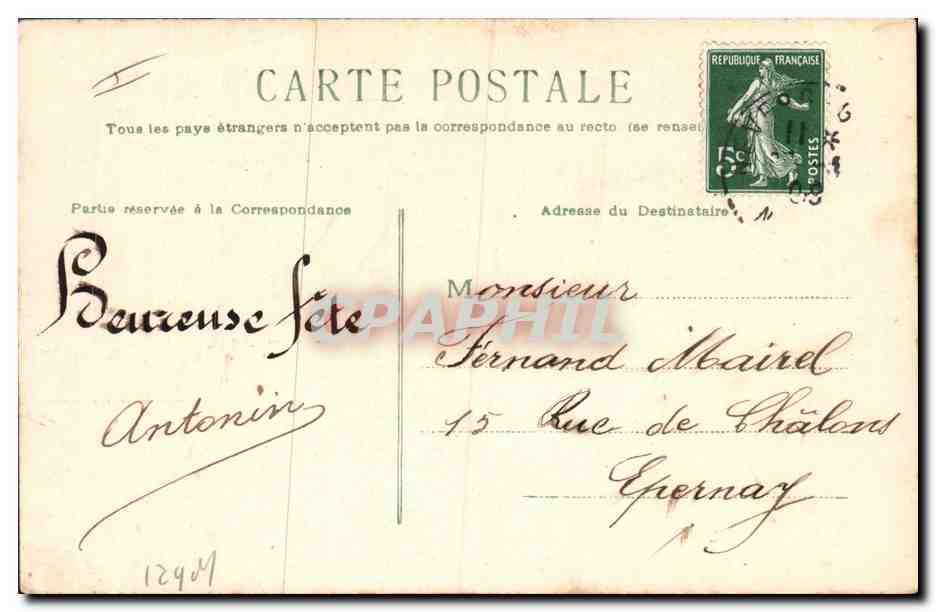 CARTE POSTALE
Tous les pays étrangers n'acceptent pas la correspondance au recto (se rensei
RÉPUBLIQUE FRANÇAISE
5c
POSTES
11
09
Partie réservée à la Correspondance
Adresse du Destinataire
Heureuse fête
Antonin
Monsieur
Fernand Mairel
15 Rue de Châlons
Epernay
CPAPHIL